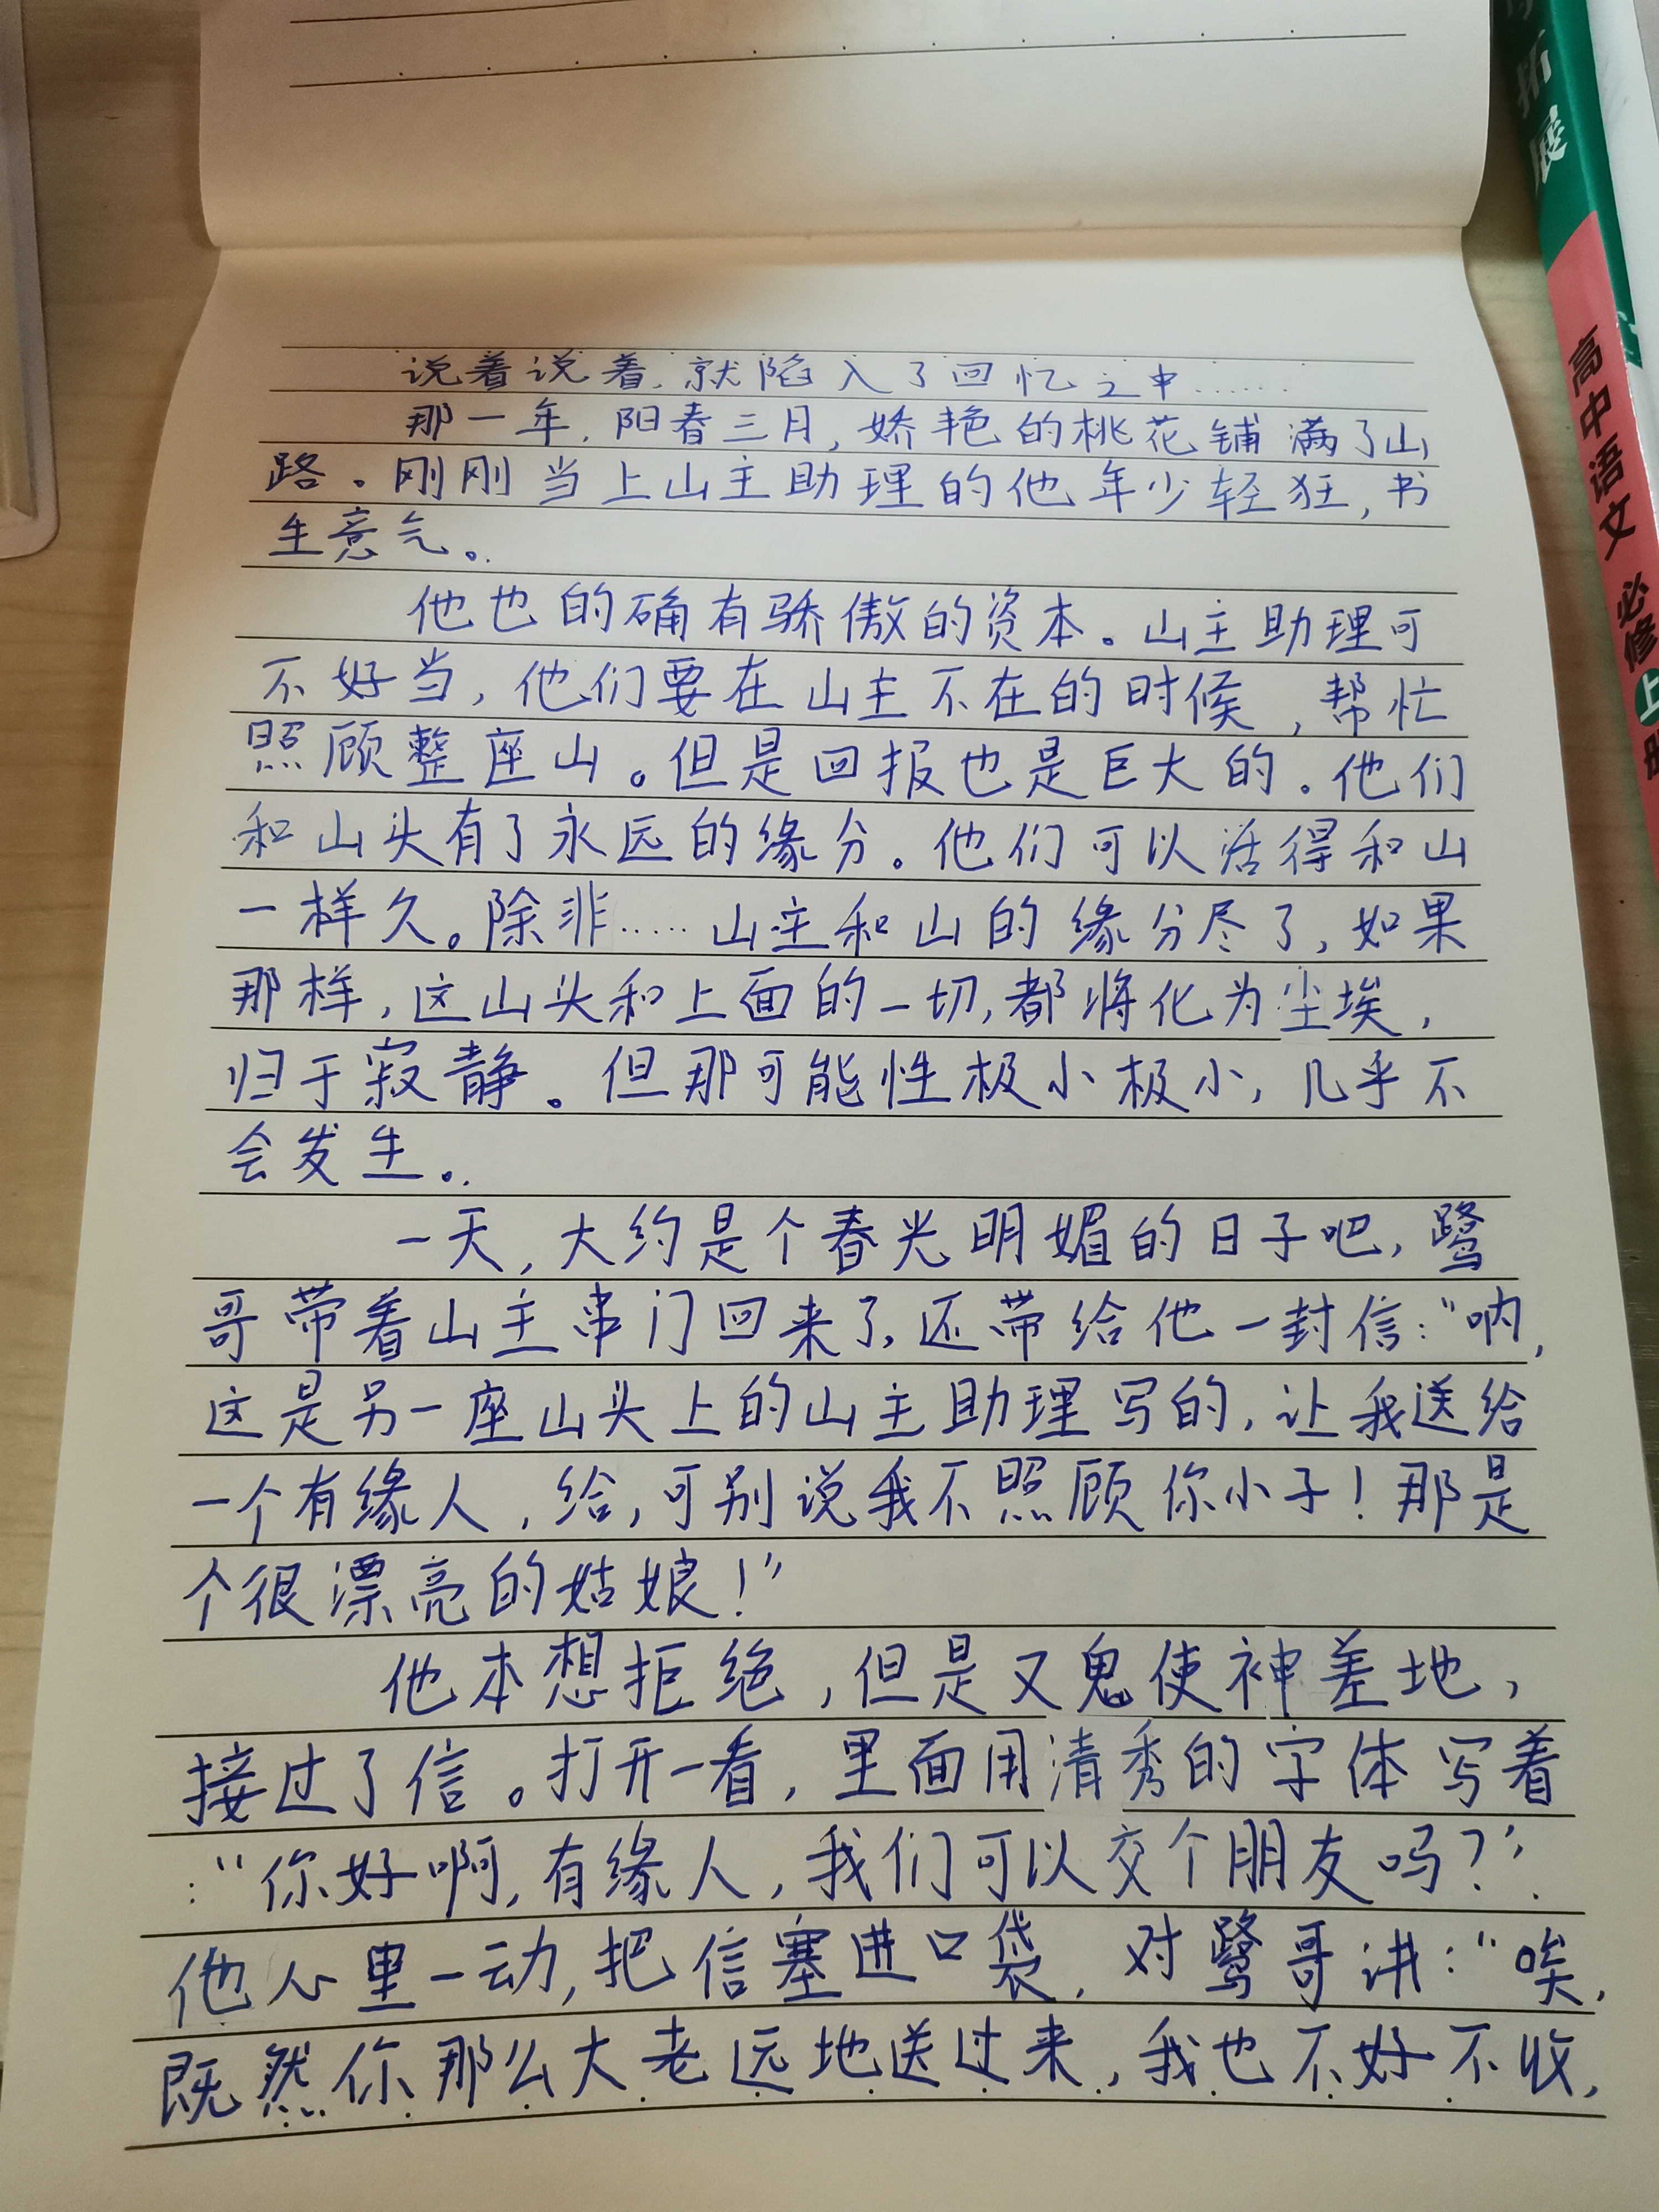 说着说着，就陷入了回忆之中……
那一年，阳春三月，娇艳的桃花铺满了山
路。刚刚当上山主助理的他年少轻狂，书
生意气。
他也的确有骄傲的资本。山主助理可
不好当，他们要在山主不在的时候，帮忙
照顾整座山。但是回报也是巨大的。他们
和山头有了永远的缘分。他们可以活得和山
一样久。除非……山主和山的缘分尽了，如果
那样，这山头和上面的一切，都将化为尘埃，
归于寂静。但那可能性极小极小，几乎不
会发生。
一天，大约是个春光明媚的日子吧，鹭
哥带着山主串门回来了，还带给他一封信：“呐，
这是另一座山头上的山主助理写的，让我送给
一个有缘人，给，可别说我不照顾你小子！那是
个很漂亮的姑娘！”
他本想拒绝，但是又鬼使神差地，
接过了信。打开一看，里面用清秀的字体写着
：“你好啊，有缘人，我们可以交个朋友吗？”.
他心里一动，把信塞进口袋，对鹭哥讲：“唉，
既然你那么大老远地送过来，我也不好不收，
拓展
高中语文 必修 上册